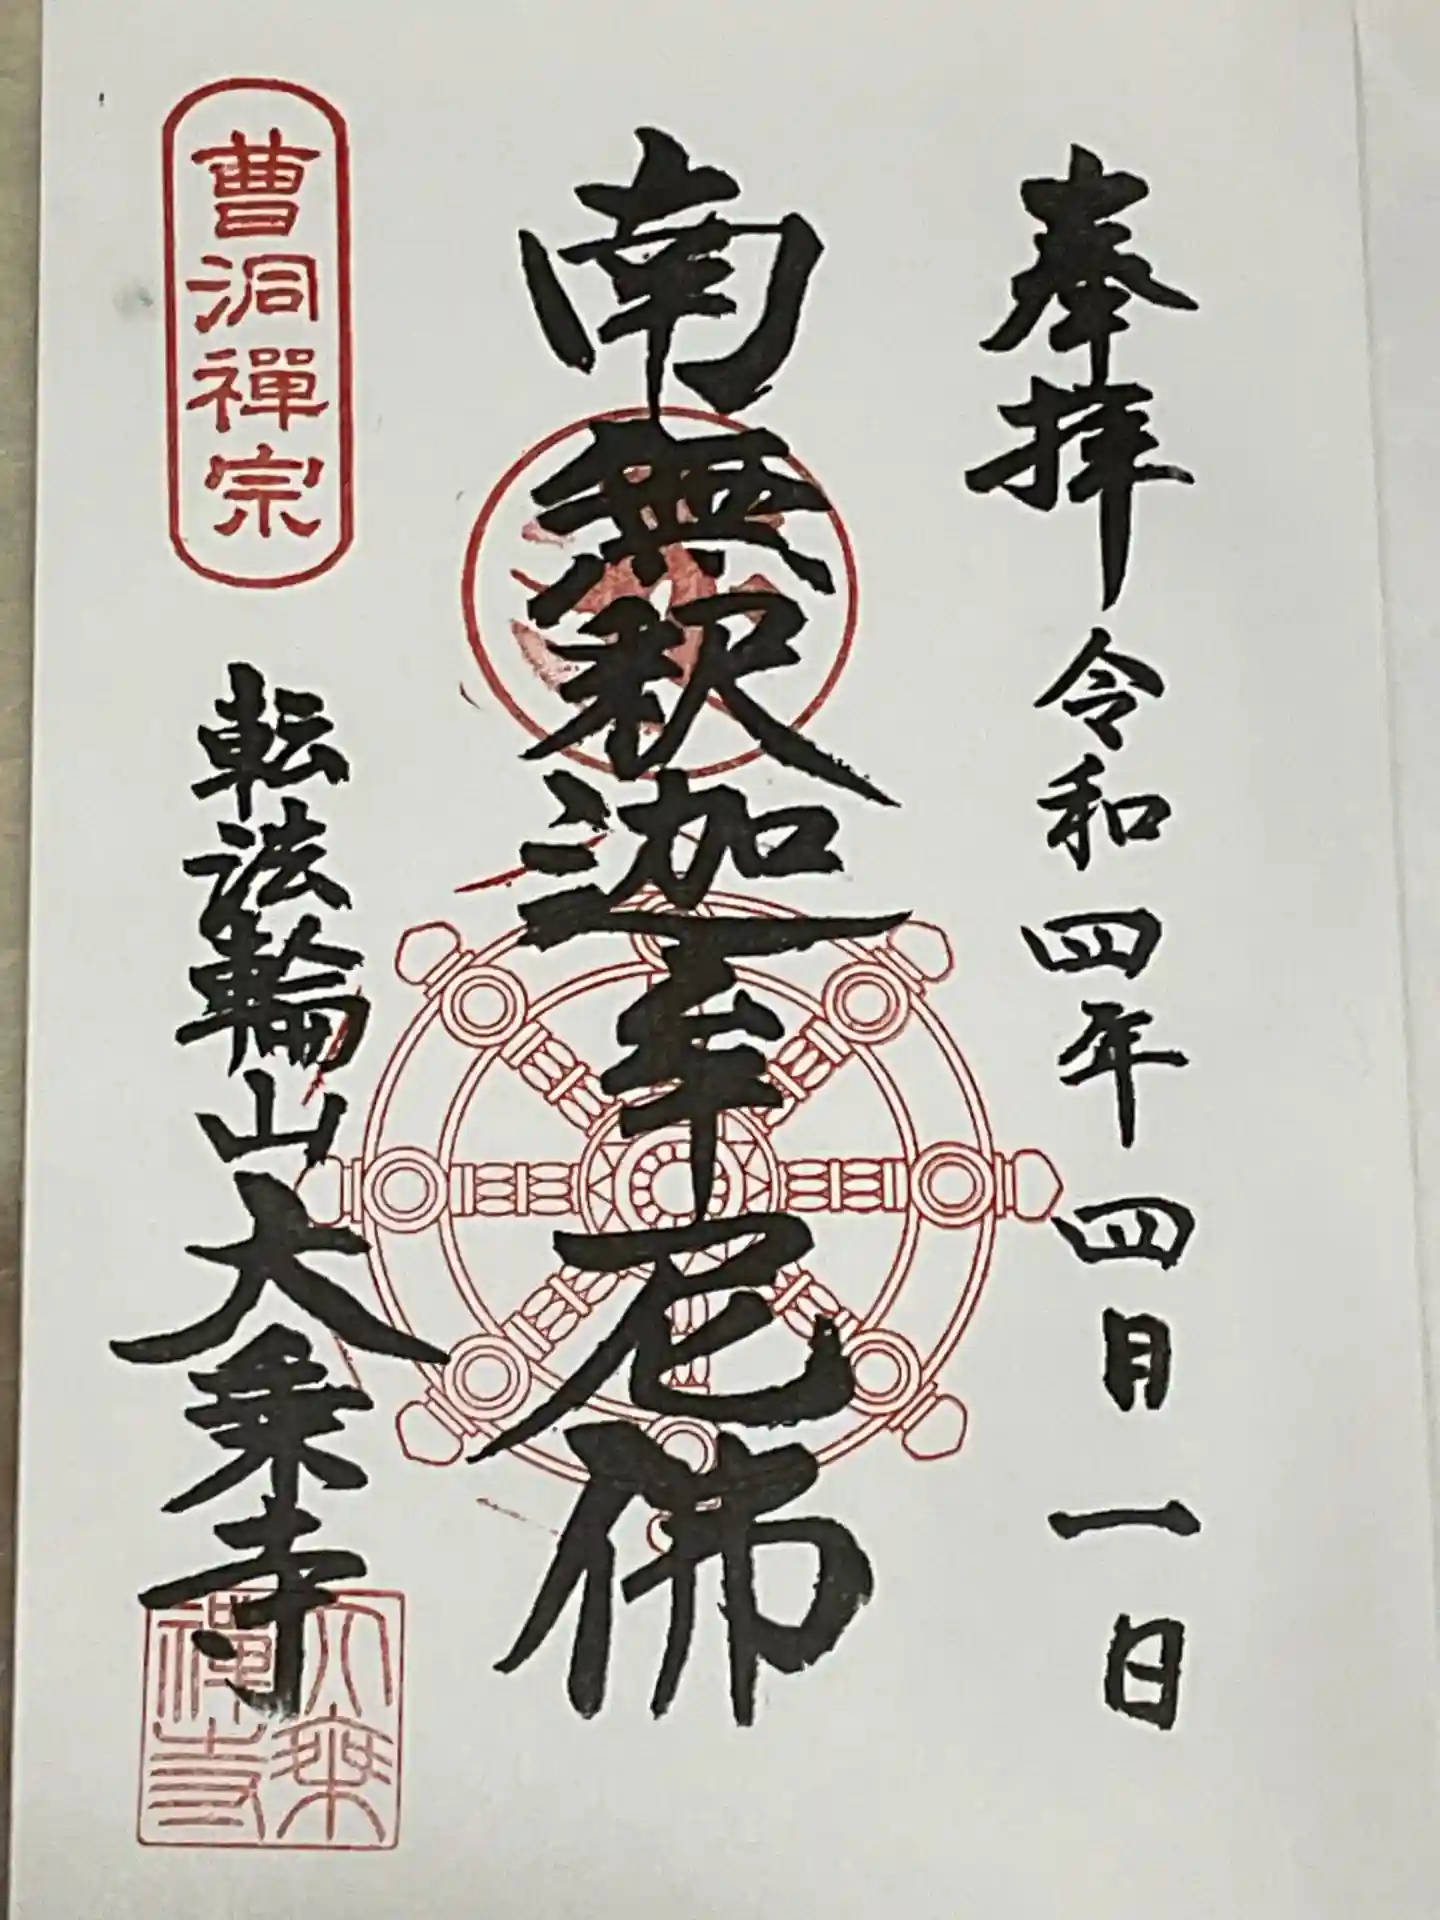 奉拝 令和四年四月一日
南無釈迦牟尼佛
曹洞禪宗
転法輪山大乗寺
大乗禪寺